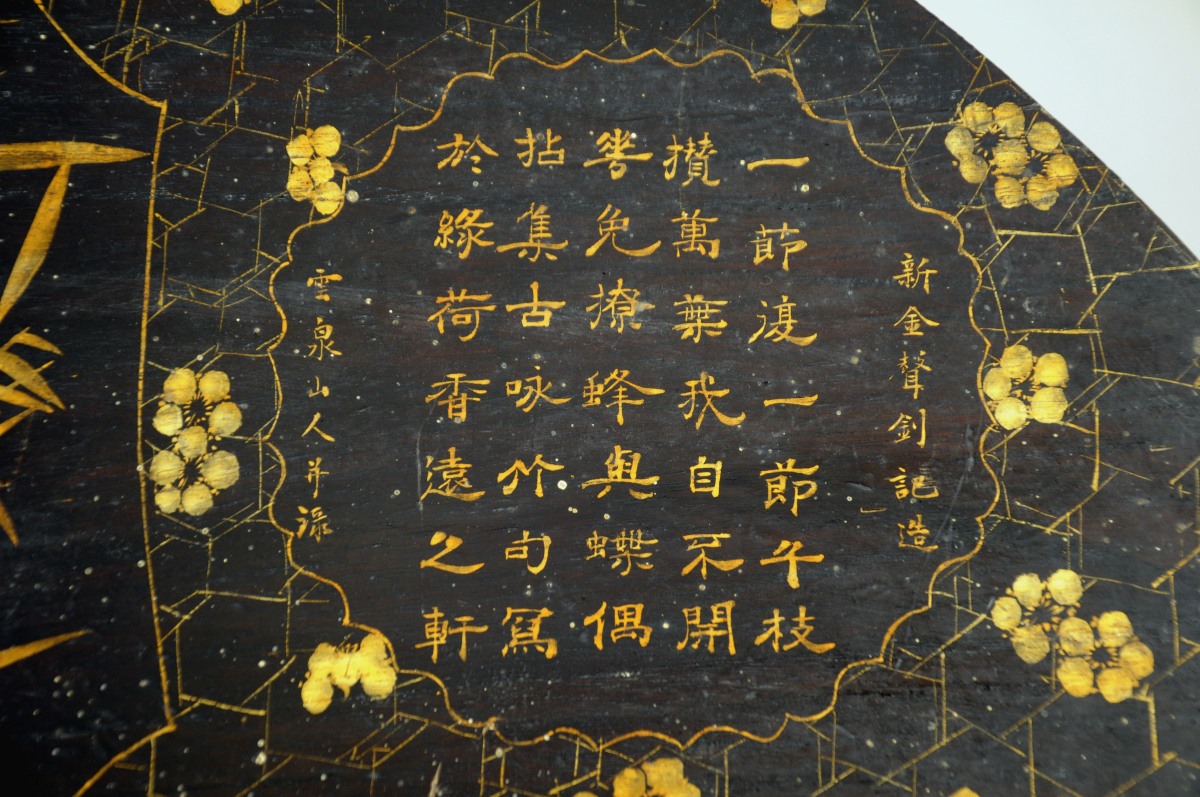 新金聲釗記造
一節復一節千枝
攢萬葉我自不開
花免撩蜂與蝶偶
拈集古咏竹句寫
於綠荷香遠之軒
雲泉山人并